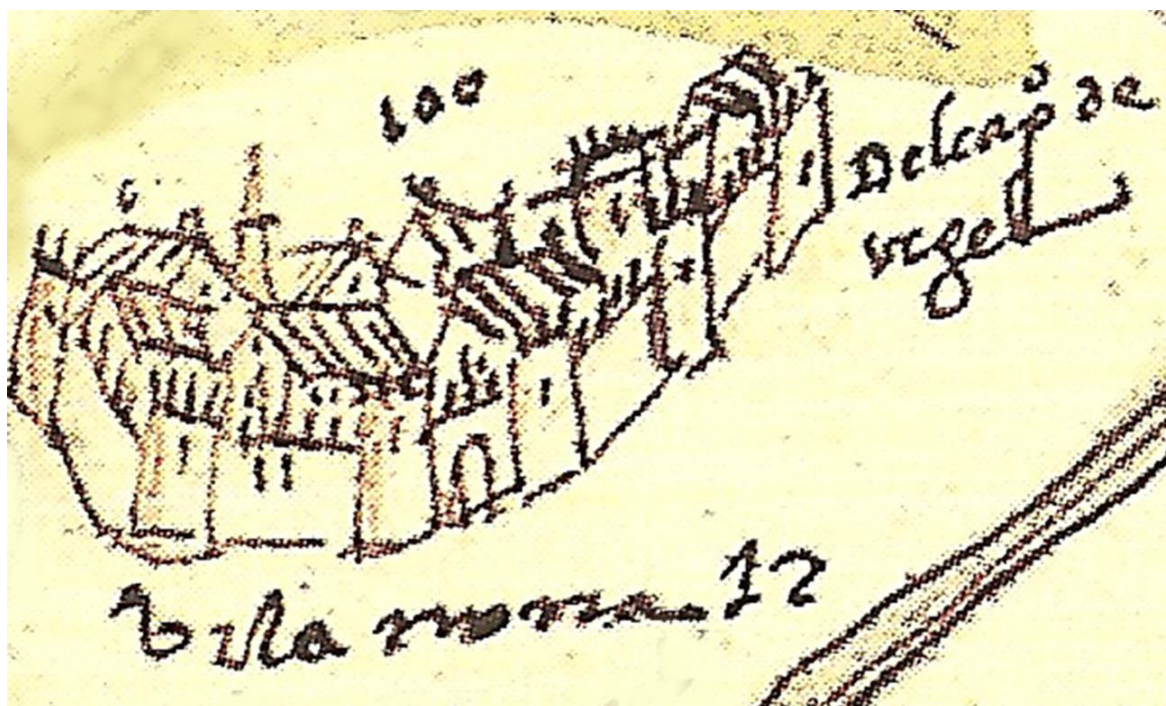 100
Del de
vegel
Vila nova 12